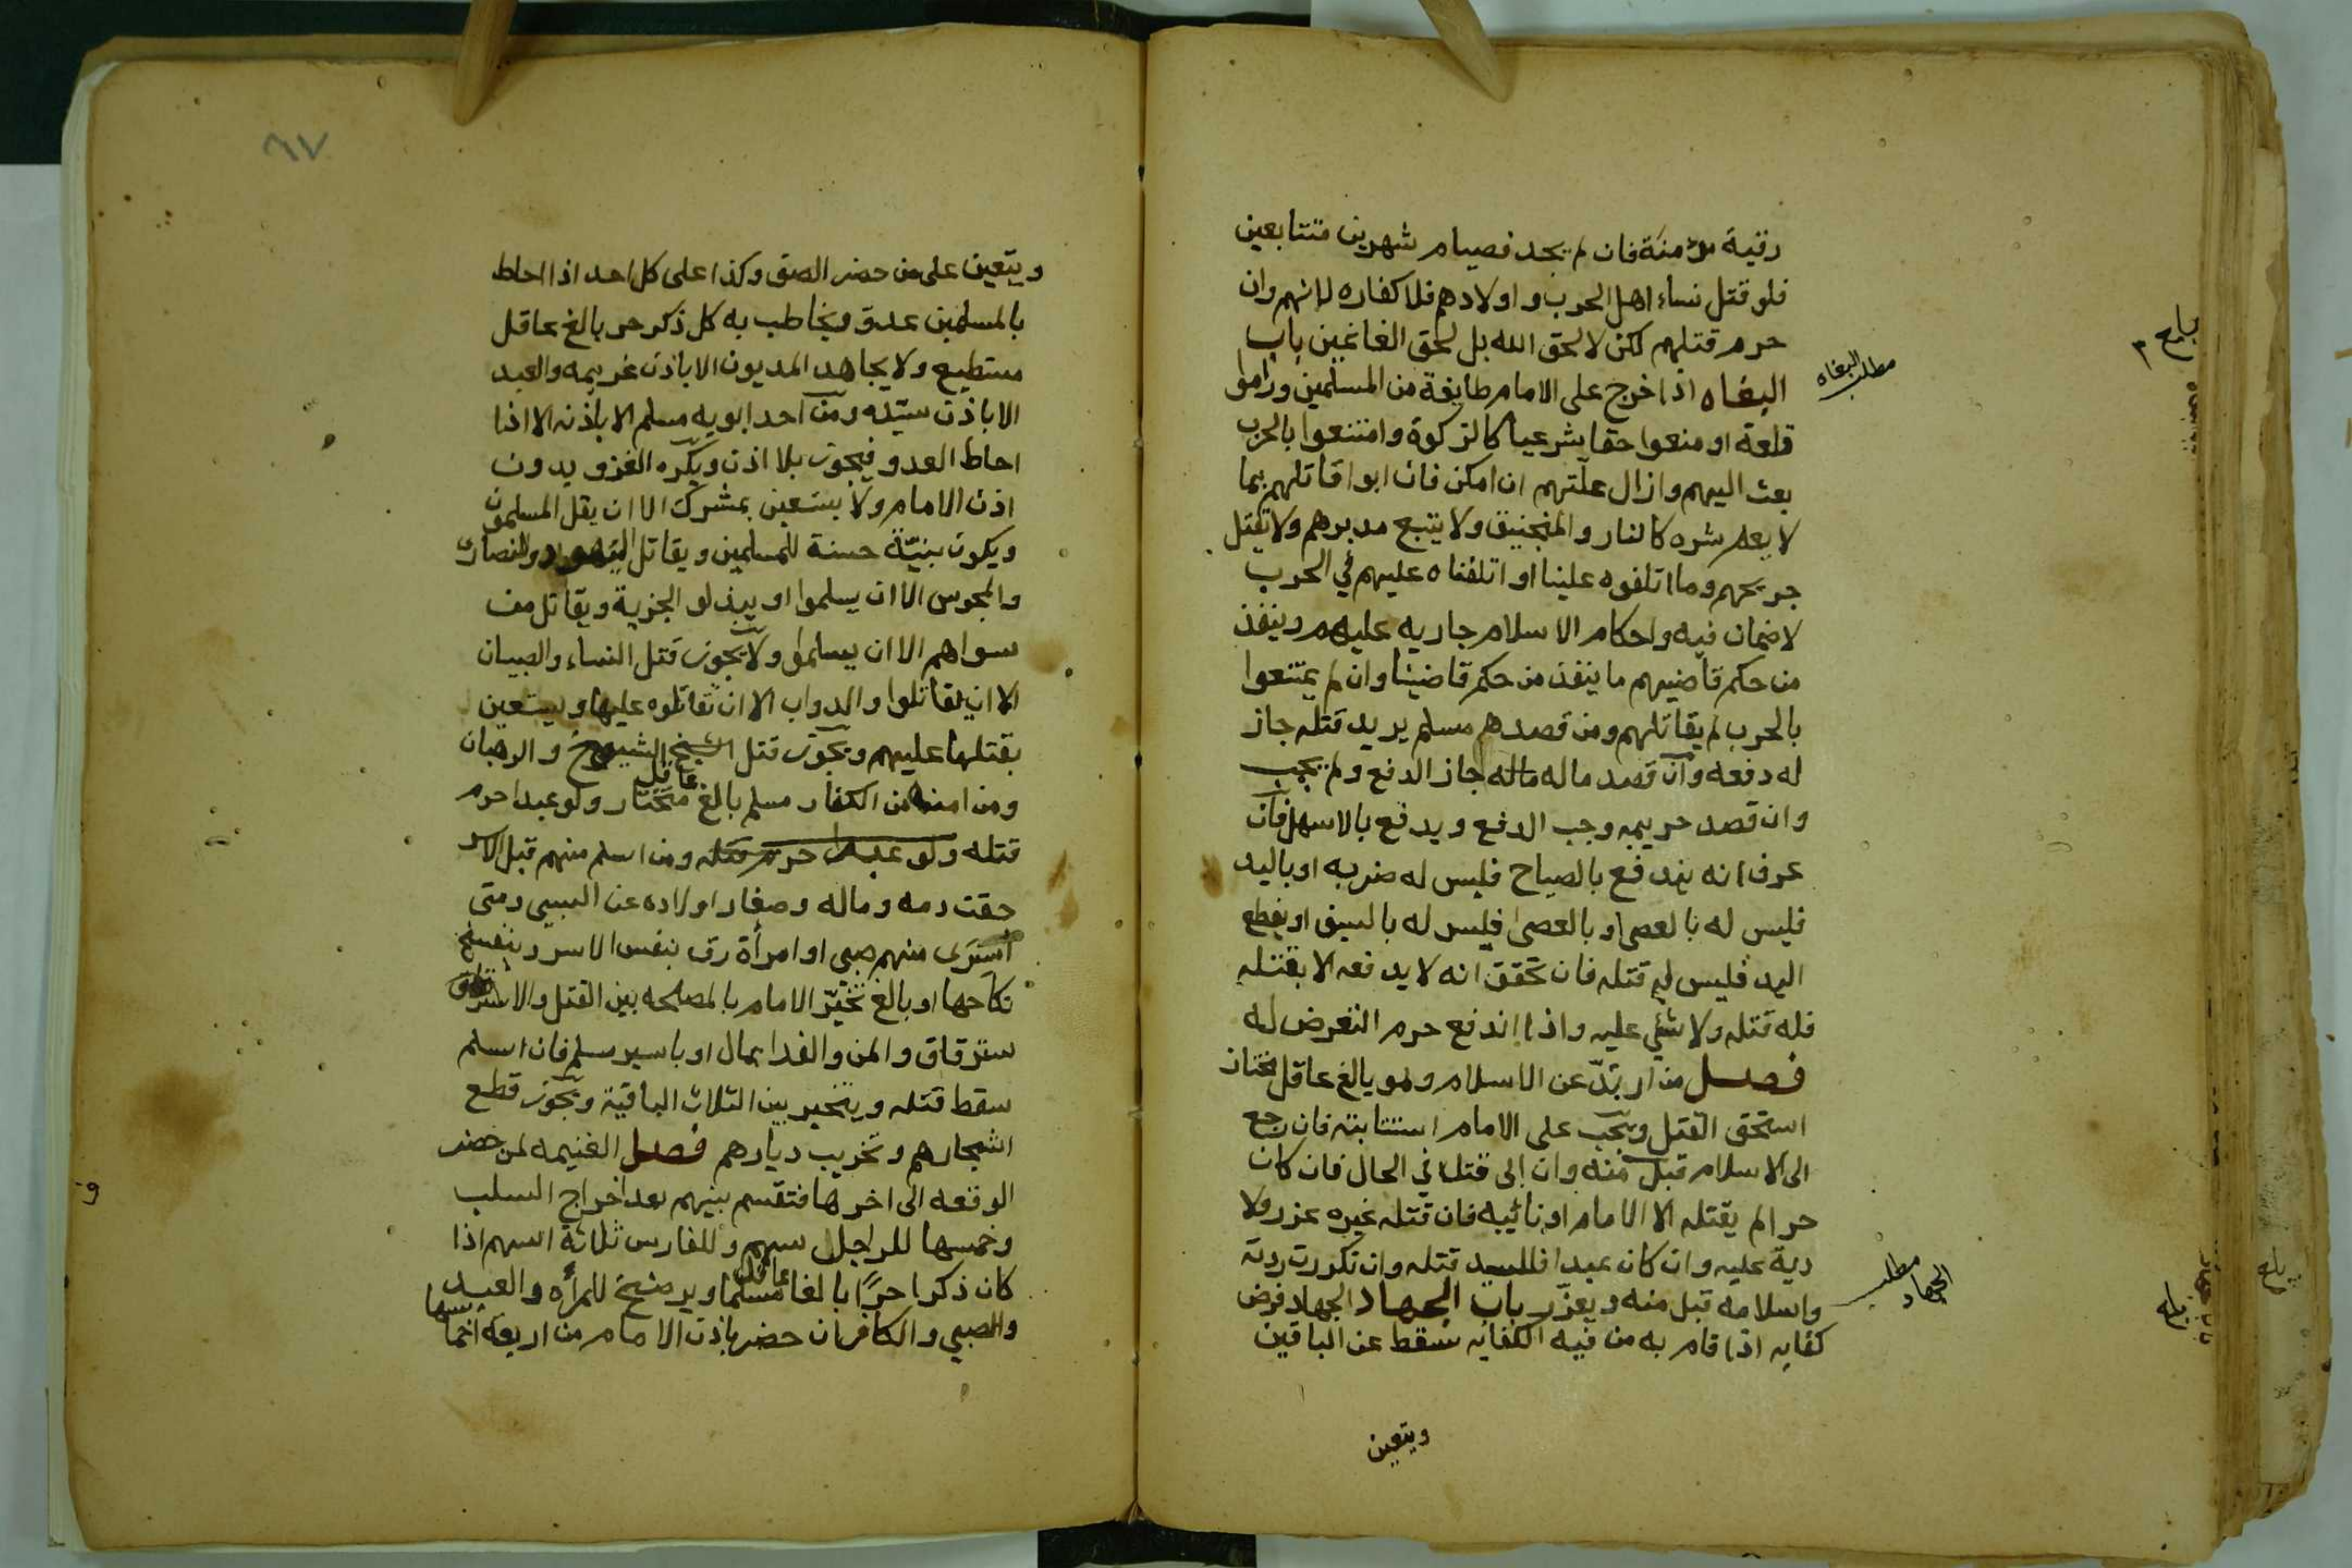 رقبة مؤمنة فان لم يجد فصيام شهرين متتابعين
فلو قتل نساء اهل الحرب واولادهم فلا كفاره لانهم وان
حرم قتلهم لكن لا لحق الله بل لحق الغانمين باب
البغاه اذا خرج على الامام طايفة من المسلمين وراموا
مطلب البغاه
قلعة او منعوا حقا شرعيا كالزكوة وامتنعوا بالحرب
بعث اليهم وازال علّتهم ان امكن فان ابوا قاتلهم بما
لا يعم شره كالنار والمنجنيق ولا يتبع مدبرهم ولا يقتل
جريحهم وما اتلفوه علينا او اتلفناه عليهم في الحرب
لا ضمان فيه واحكام الاسلام جاريه عليهم وينفذ
من حكم قاضيهم ما ينفذ من حكم قاضينا وان لم يمتنعوا
بالحرب لم يقاتلهم ومن قصدهم مسلم يريد قتله جاز
له دفعه وان قصد ماله ماله جاز الدفع ولم يجب
وان قصد حريمه وجب الدفع ويدفع بالاسهل فان
عرف انه يندفع بالصياح فليس له ضربه او باليد
فليس له بالعصى او بالعصى فليس له بالسيف او بقطع
اليد فليس له قتله فان تحقق انه لا يدفعه الا بقتله
فله قتله ولا شيء عليه واذا اندفع حرم التعرض له
فصل من ارتدّ عن الاسلام وهو بالغ عاقل مختار
استحق القتل ويجب على الامام استتابته فان رجع
الى الاسلام قبل منه وان ابى قتل في الحال فان كان
حرا لم يقتله الا الامام او نائيبه فان قتله غيره عزر ولا
دية عليه وان كان عبدا فللسيد قتله وان تكررت ردته
واسلامه قبل منه ويعزّر باب الجهاد الجهاد فرض
مطلب الجهاد
كفايه اذا قام به من فيه الكفايه سقط عن الباقين
ويتعين
بلغ
٦٧
ويتعين على من حضر الصف وكذا على كل احد اذا احاط
بالمسلمين عدوّ ويخاطب به كل ذكر حر بالغ عاقل
مستطيع ولا يجاهد المديون الا باذن غريمه والعبد
الا باذن سيّده ومن احد ابويه مسلم الا باذنه الا اذا
احاط العدو فيجوز بلا اذن ويكره الغزو بدون
اذن الامام ولا يستعين بمشرك الا ان يقل المسلمون
ويكون بنيّة حسنة للمسلمين ويقاتل اليهود والنصارى
والمجوس الا ان يسلموا او يبذلو الجزية ويقاتل من
سواهم الا ان يسلموا ولا يجوز قتل النساء والصبيان
الا ان يقاتلوا والدواب الا ان تقاتلوه عليها ويستعين
بقتلها عليهم ويجوز قتل الشيخ الشيوخ والرهبان
ومن امنه من الكفار مسلم بالغ عاقل مختار ولو عبدا حرم
قتله ولو عبدا حرم قتله ومن اسلم منهم قبل الاسر
حقت دمه وماله وصغار اولاده عن السبى ومتى
استرى منهم صبى او امرأة رق بنفس الاسر وينفسخ
نكاحها او بالغ تخيّر الامام بالمصلحه بين القتل والا
سترقاق والمن والفدا بمال او باسير مسلم فان اسلم
سقط قتله ويتخير بين الثلاث الباقية ويجوز قطع
اشجارهم وتخريب ديارهم فصل الغنيمه لمن حضر
الوقعه الى اخرها فتقسم بينهم بعد اخراج السلب
وخمسها للراجل سهم وللفارس ثلاثة اسهم اذا
كان ذكرا حرًا بالغا عاقلا مسلما ويرضخ للمرأه والعبد
والصبي والكافر ان حضر باذن الامام من اربعة اخماسها